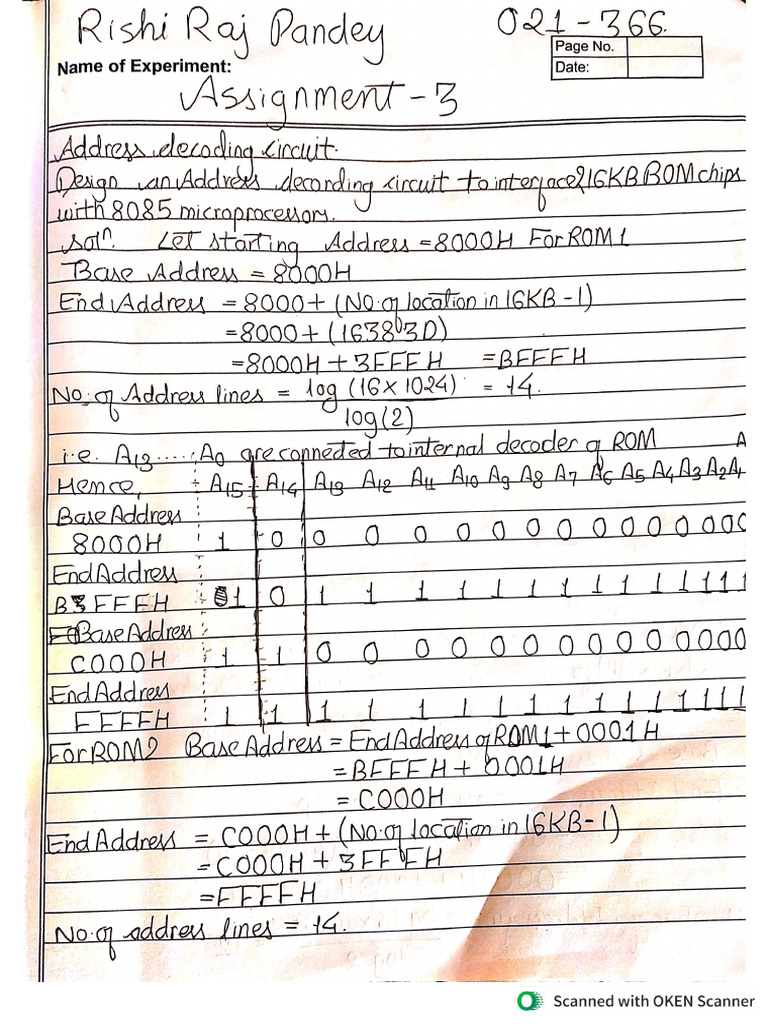 Rishi Raj Pandey 021-366.
Page No.
Name of Experiment:
Date:
Assignment-3
Address decoding circuit.
Design an Address decording circuit to interface 2 16KB ROM chips
with 8085 microprocessors.
solⁿ. Let starting Address = 8000H For ROM 1
Base Address = 8000H
End Address = 8000 + (No. of location in 16KB -1)
= 8000 + (16383D)
= 8000H + 3FFFH = BFFFH
No. of Address lines = log (16 x 1024) = 14.
log(2)
i.e. A13 ..... A0 are connected to internal decoder of ROM A
Hence, A15 A14 A13 A12 A11 A10 A9 A8 A7 A6 A5 A4 A3 A2 A1
Base Address
8000H 1 0 0 0 0 0 0 0 0 0 0 0 0 0 0 0
End Address
BFFFH 1 0 1 1 1 1 1 1 1 1 1 1 1 1 1 1
Base Address
C000H 1 1 0 0 0 0 0 0 0 0 0 0 0 0 0 0
End Address
FFFFH 1 1 1 1 1 1 1 1 1 1 1 1 1 1 1 1
For ROM2 Base Address = End Address of ROM1 + 0001H
= BFFFH + 0001H
= C000H
End Address = C000H + (No. of location in 16KB-1)
= C000H + 3FFFH
= FFFFH
No. of address lines = 14.
Scanned with OKEN Scanner